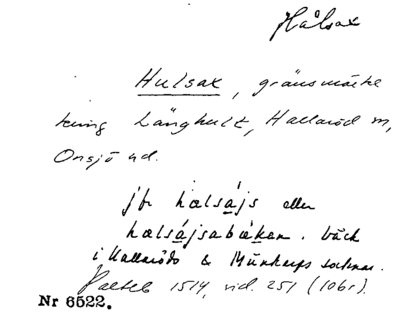 Hålsax
Hulsax, gränsmärke
kring Långhult, Hallaröd m,
Onsjö hd.
jfr halsájs eller
halsájsabäkan. bäck
i Hallaröds & Munkarps socknar.
1514, vid. 251 (106r).
Nr 6522.